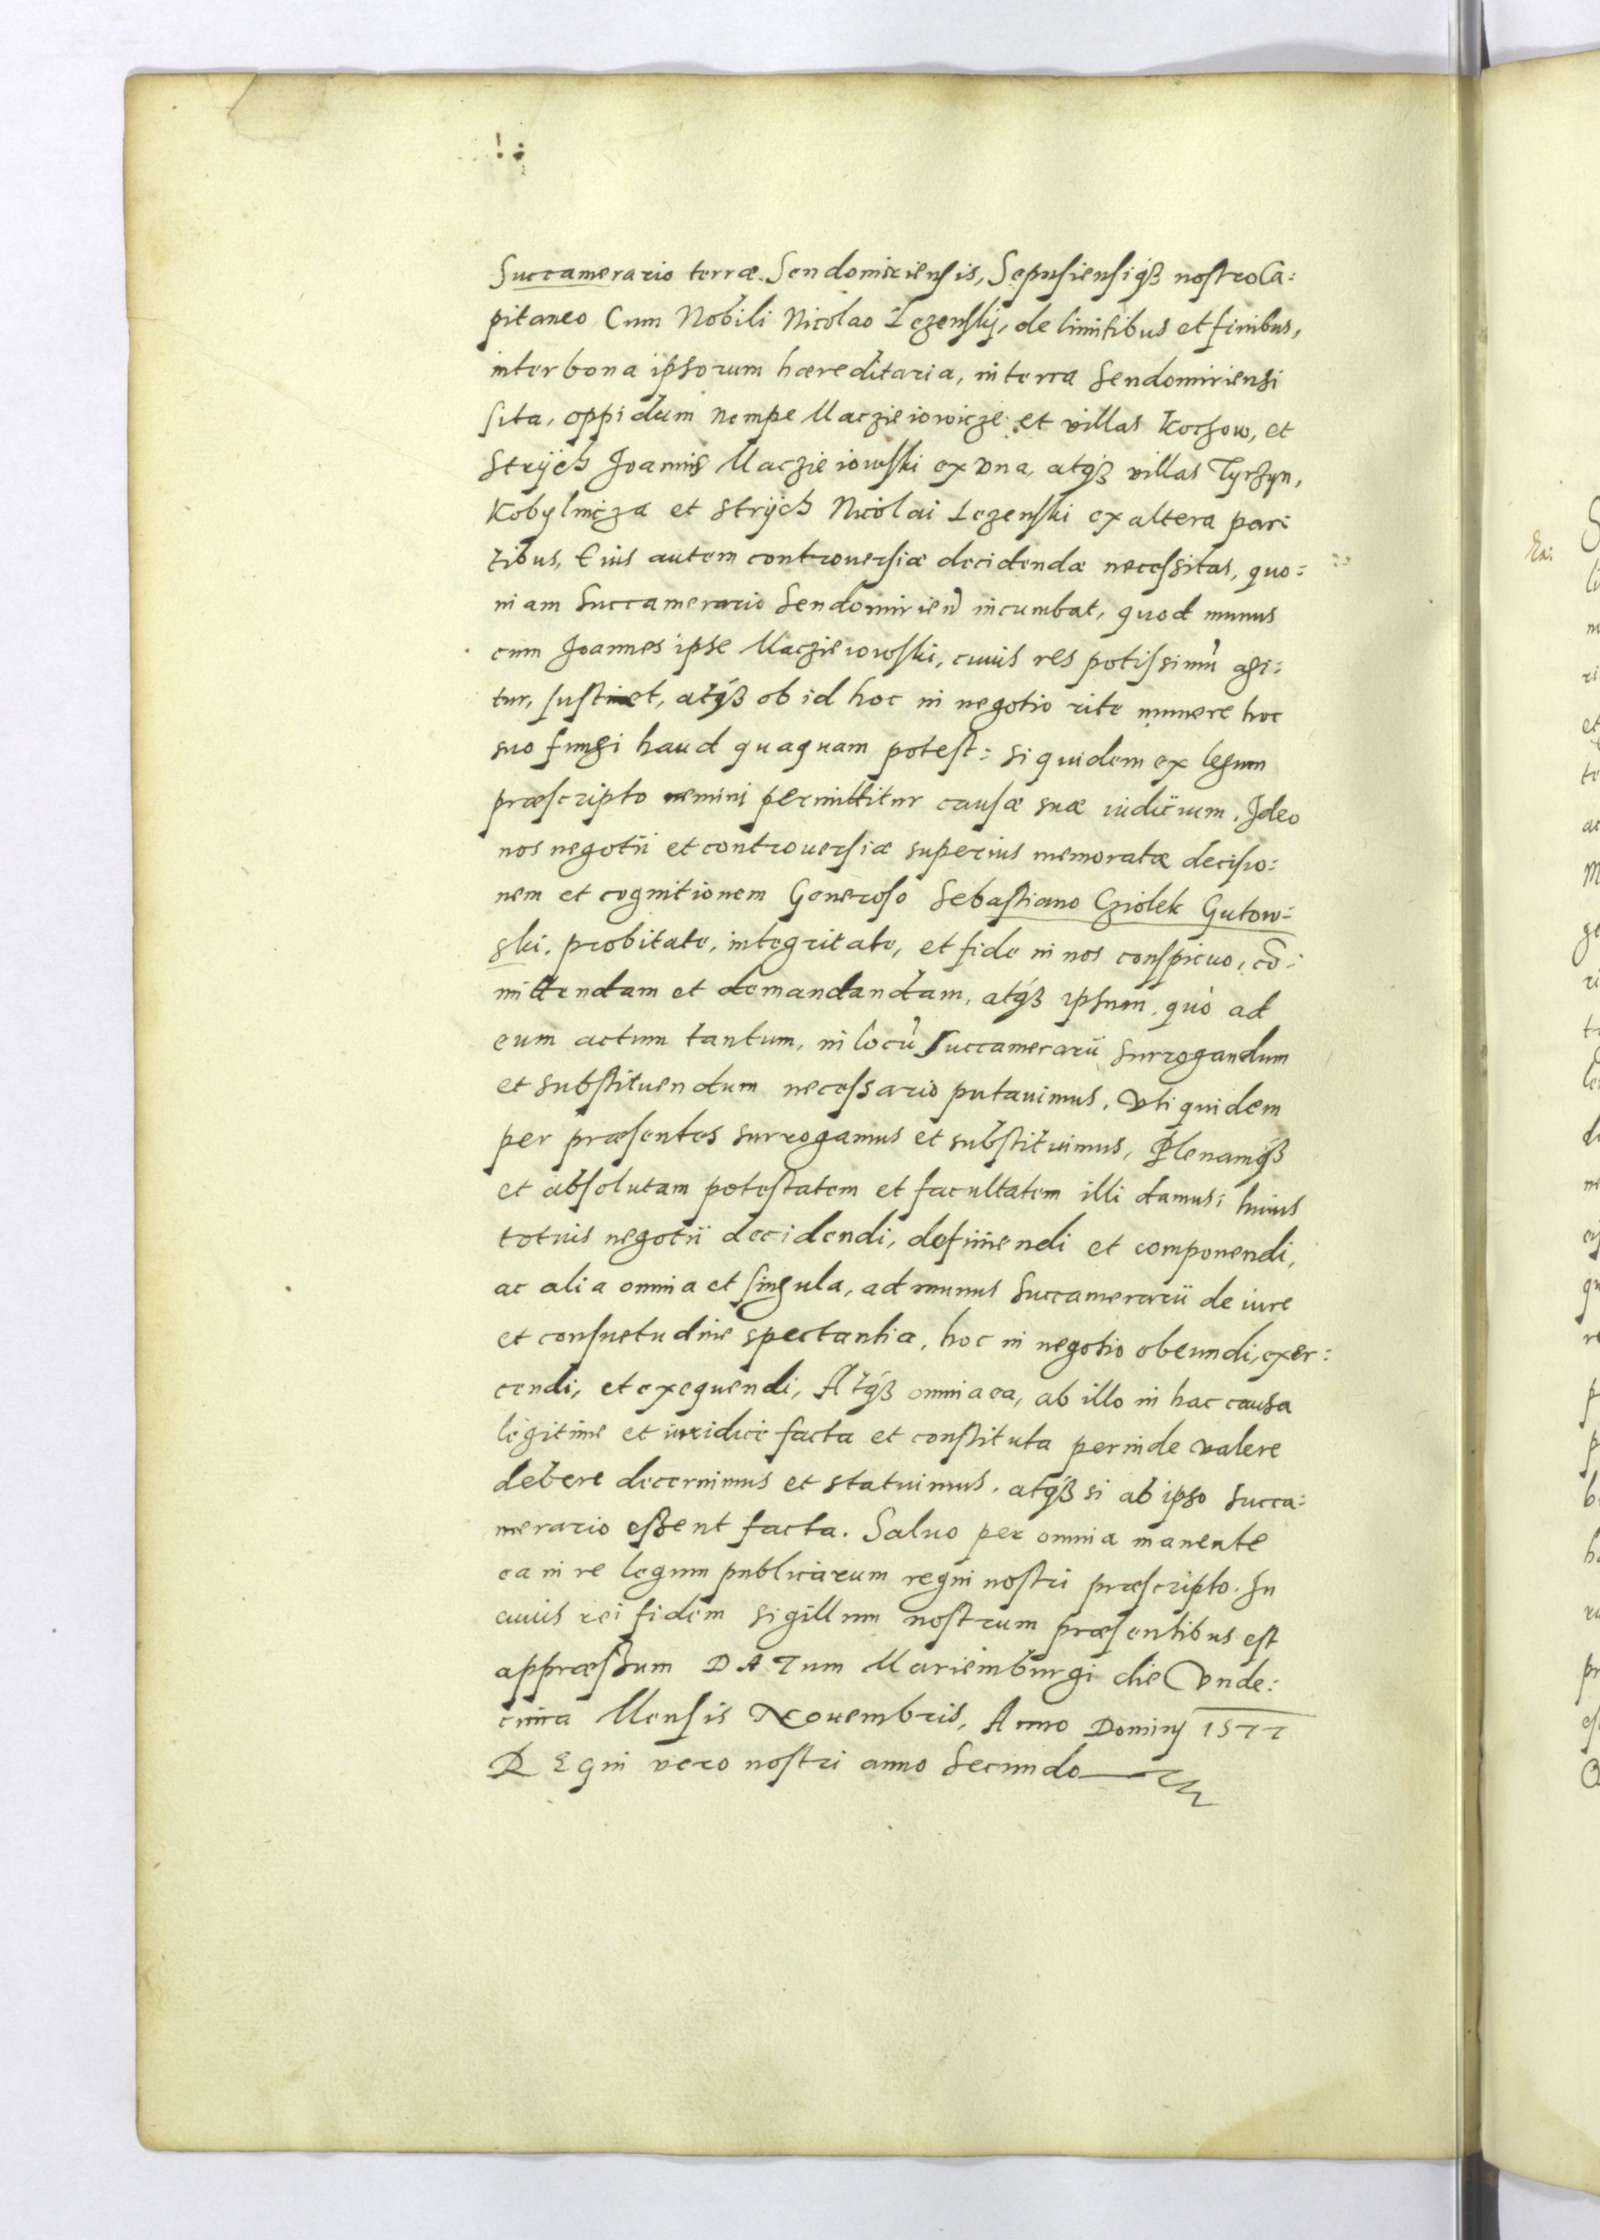 Succamerario terræ Sendomiriensis, Sepusiensiq́ꝫ nostro Ca:
pitaneo Cum Nobili Nicolao Lezenskÿ, de limitibus et finibus,
inter bona ipsorum hæreditaria, in terra Sendomiriensi
sita, oppidum nempe Maczieiowicze et villas Kochow, et
Strÿch Joannis Maczieiowski ex vna, atq́ꝫ villas Tyrzyn,
Kobylnicza et Strÿch Nicolai Lezenski ex altera par:
tibus, Eius autem controuersiæ decidendæ necessitas, quo:
niam Succamerario Sendomirien̄ incumbat, quod munus
cum Joannes ipse Maczieiowski, cuius res potissimū agi:
tur, sustinet, atq́ꝫ ob id hoc in negotio rite munere hoc
suo fungi haud quaquam potest: siquidem ex legum
præscripto nemini permittitur causæ suæ iudicium. Ideo
nos negotii et controuersiæ superius memoratæ decisio:
nem et cognitionem Generoso Sebastiano Cziolek Gutow:
ski, probitate, integritate, et fide in nos conspicuo, cō:
mittendam et demandandam, atq́ꝫ ipsum, quò ad
eum actum tantum, in locū Succamerarii surrogandum
et substituendum necessario putauimus, Vti quidem
per præsentes surrogamus et substituimus, Plenamq́ꝫ
et absolutam potestatem et facultatem illi damus; huius
totius negotii decidendi, definiendi et componendi,
ac alia omnia et singula, ad munus Succamerarii de iure
et consuetudine spectantia, hoc in negotio obeundi, exer:
cendi, et exequendi, Atq́ꝫ omnia ea, ab illo in hac causa
legitime et iuridice facta et constituta perinde valere
debere decernimus et statuimus, atq́ꝫ si ab ipso Succa:
merario essent facta. Saluo per omnia manente
ea in re legum publicarum regni nostri præscripto. In
cuius rei fidem sigillum nostrum præsentibus est
appræssum DATum Mariemburgi die Vnde:
cima Mensis Nouembris, Anno Dominj 1577
REgni vero nostri anno Secundo